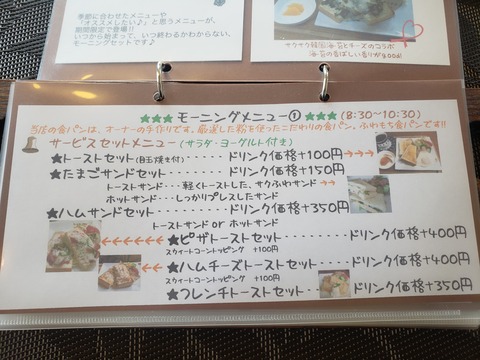 季節に合わせたメニューや
「オススメしたい♪」と思うメニューが、
期間限定で登場!!
いつから始まって、いつ終わるかわからない、
モーニングセットです♪
サクサク韓国海苔とチーズのコラボ
海苔の香ばしい香りがgood!
★★★ モーニングメニュー① ★★★ (8:30~10:30)
当店の食パンは、オーナーの手作りです。厳選した粉を使ったこだわりの食パン。ふわもち食パンです!!
サービスセットメニュー (サラダ・ヨーグルト付き)
★トーストセット(目玉焼き付)・・・・・・ドリンク価格+100円→→→
★たまごサンドセット・・・・・・・・ドリンク価格+150円
トーストサンド・・・軽くトーストした、サクふわサンド →→
ホットサンド・・・しっかりプレスしたサンド
★ハムサンドセット・・・・・・・・・ドリンク価格+350円
トーストサンド or ホットサンド
←←←←←← ★ピザトーストセット・・・・・・・ドリンク価格+400円
スウィートコーントッピング +100円
←← ★ハムチーズトーストセット・・・・ドリンク価格+400円
スウィートコーントッピング +100円
★フレンチトーストセット・・ ドリンク価格+350円